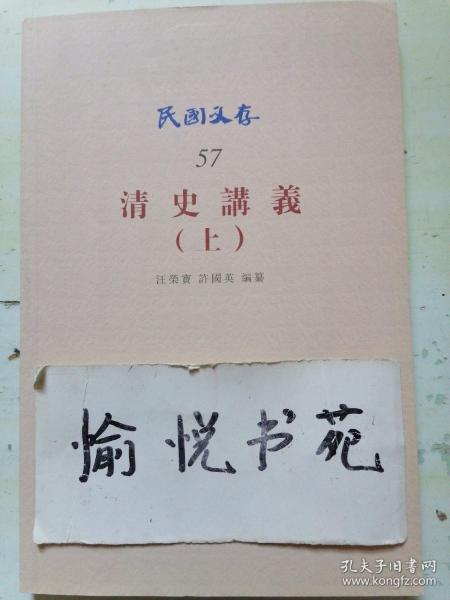 民國文存
57
清史講義
(上)
汪榮寶 許國英 編纂
愉悦书苑
孔夫子旧书网
www.kongfz.com